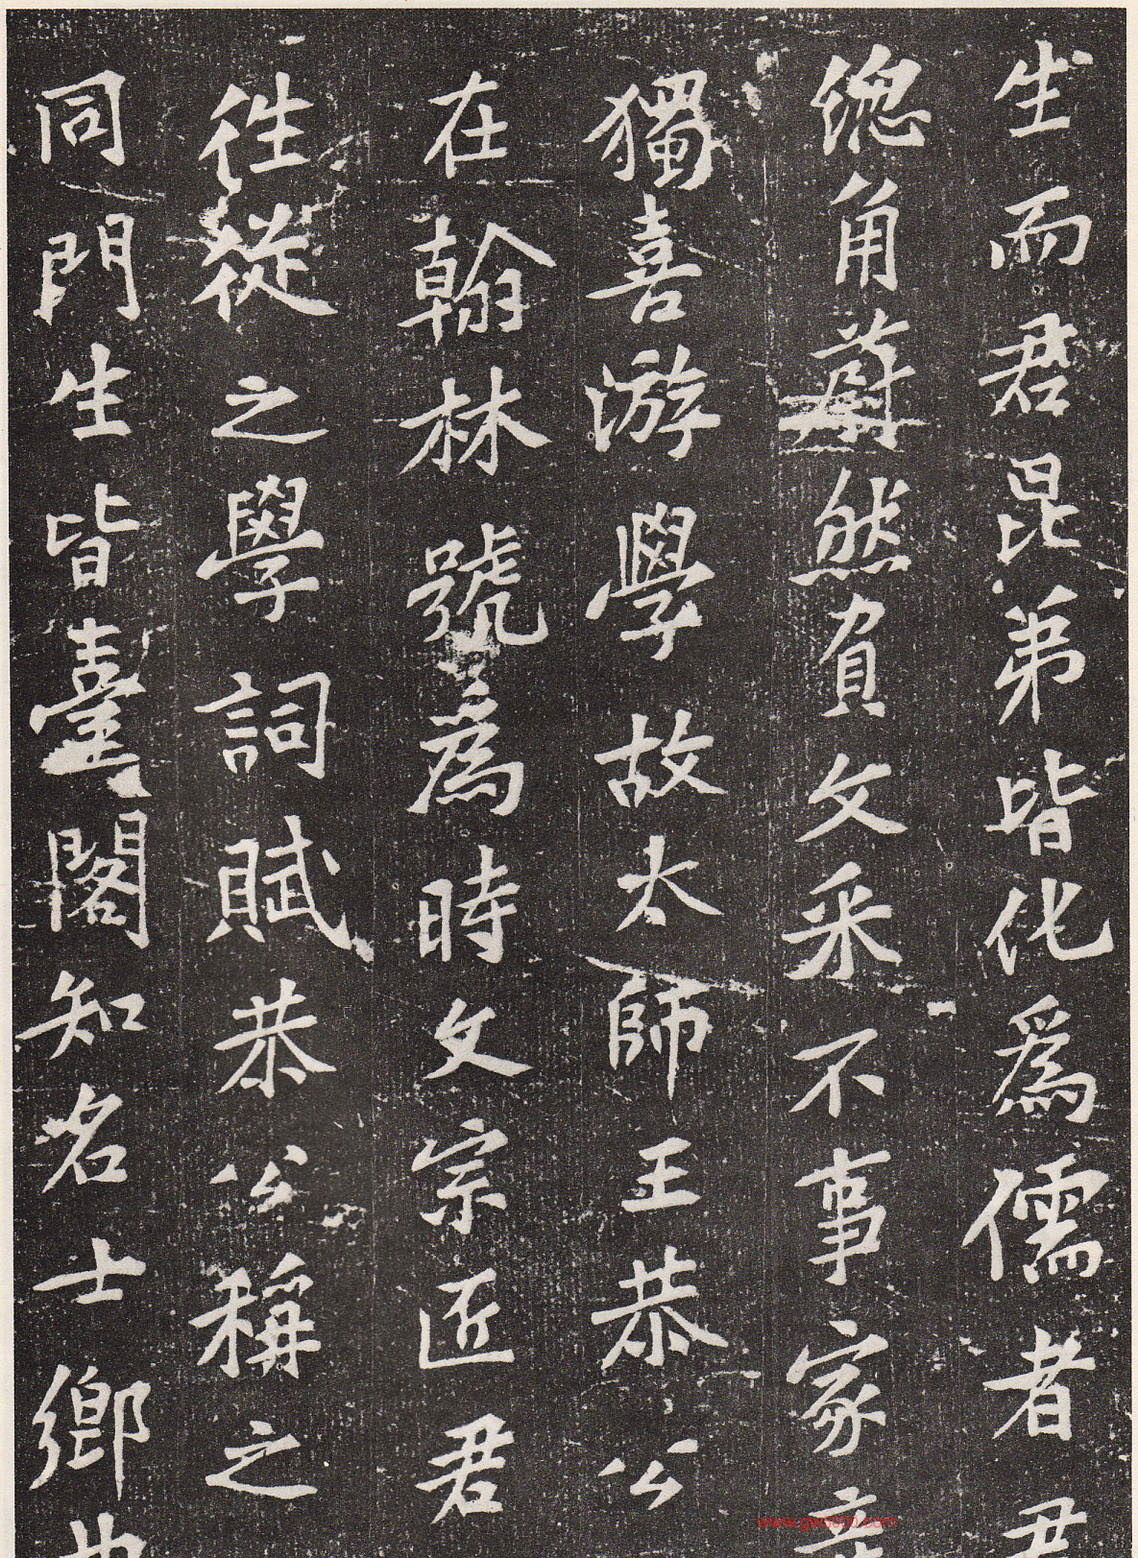 生而君昆弟皆化爲儒者君
總角蔚然負文采不事家
獨喜游學故太師王恭公
在翰林號爲時文宗匠君
往從之學詞賦恭公稱之
同門生皆臺閣知名士鄉
www.gwshth.com